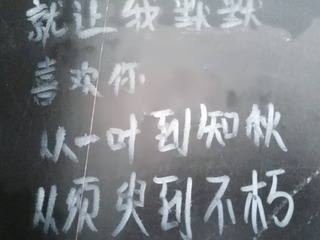 就让我默默
喜欢你
从一叶到知秋
从须臾到不朽